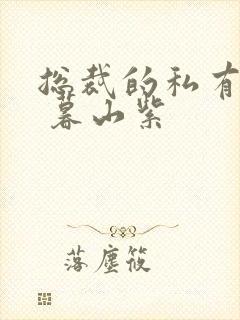 总裁的私有
暮山紫
落尘筱